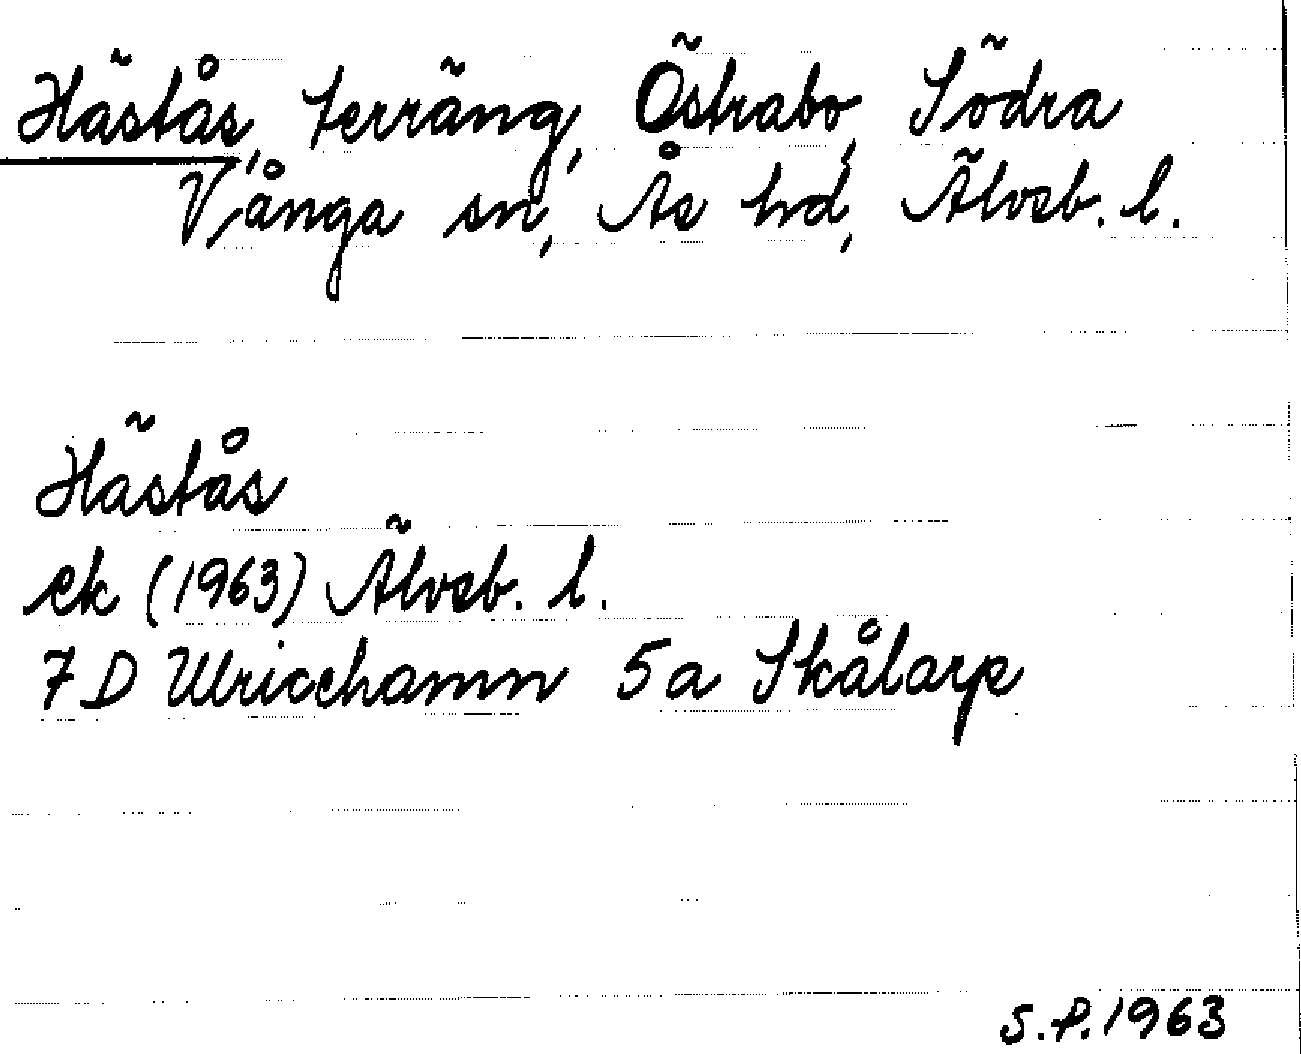 Hästås, terräng, Östrabo, Södra
Vånga sn, Ås hd, Älvsb. l.
Hästås
ek (1963) Älvsb. l.
7D Ulricehamn 5a Skålarp
S.P. 1963